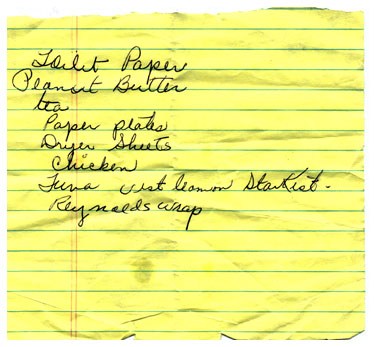 Toilet Paper
Peanut Butter
tea
Paper plates
Dryer Sheets
Chicken
Tuna leamon StarKist.
Reynolds wrap